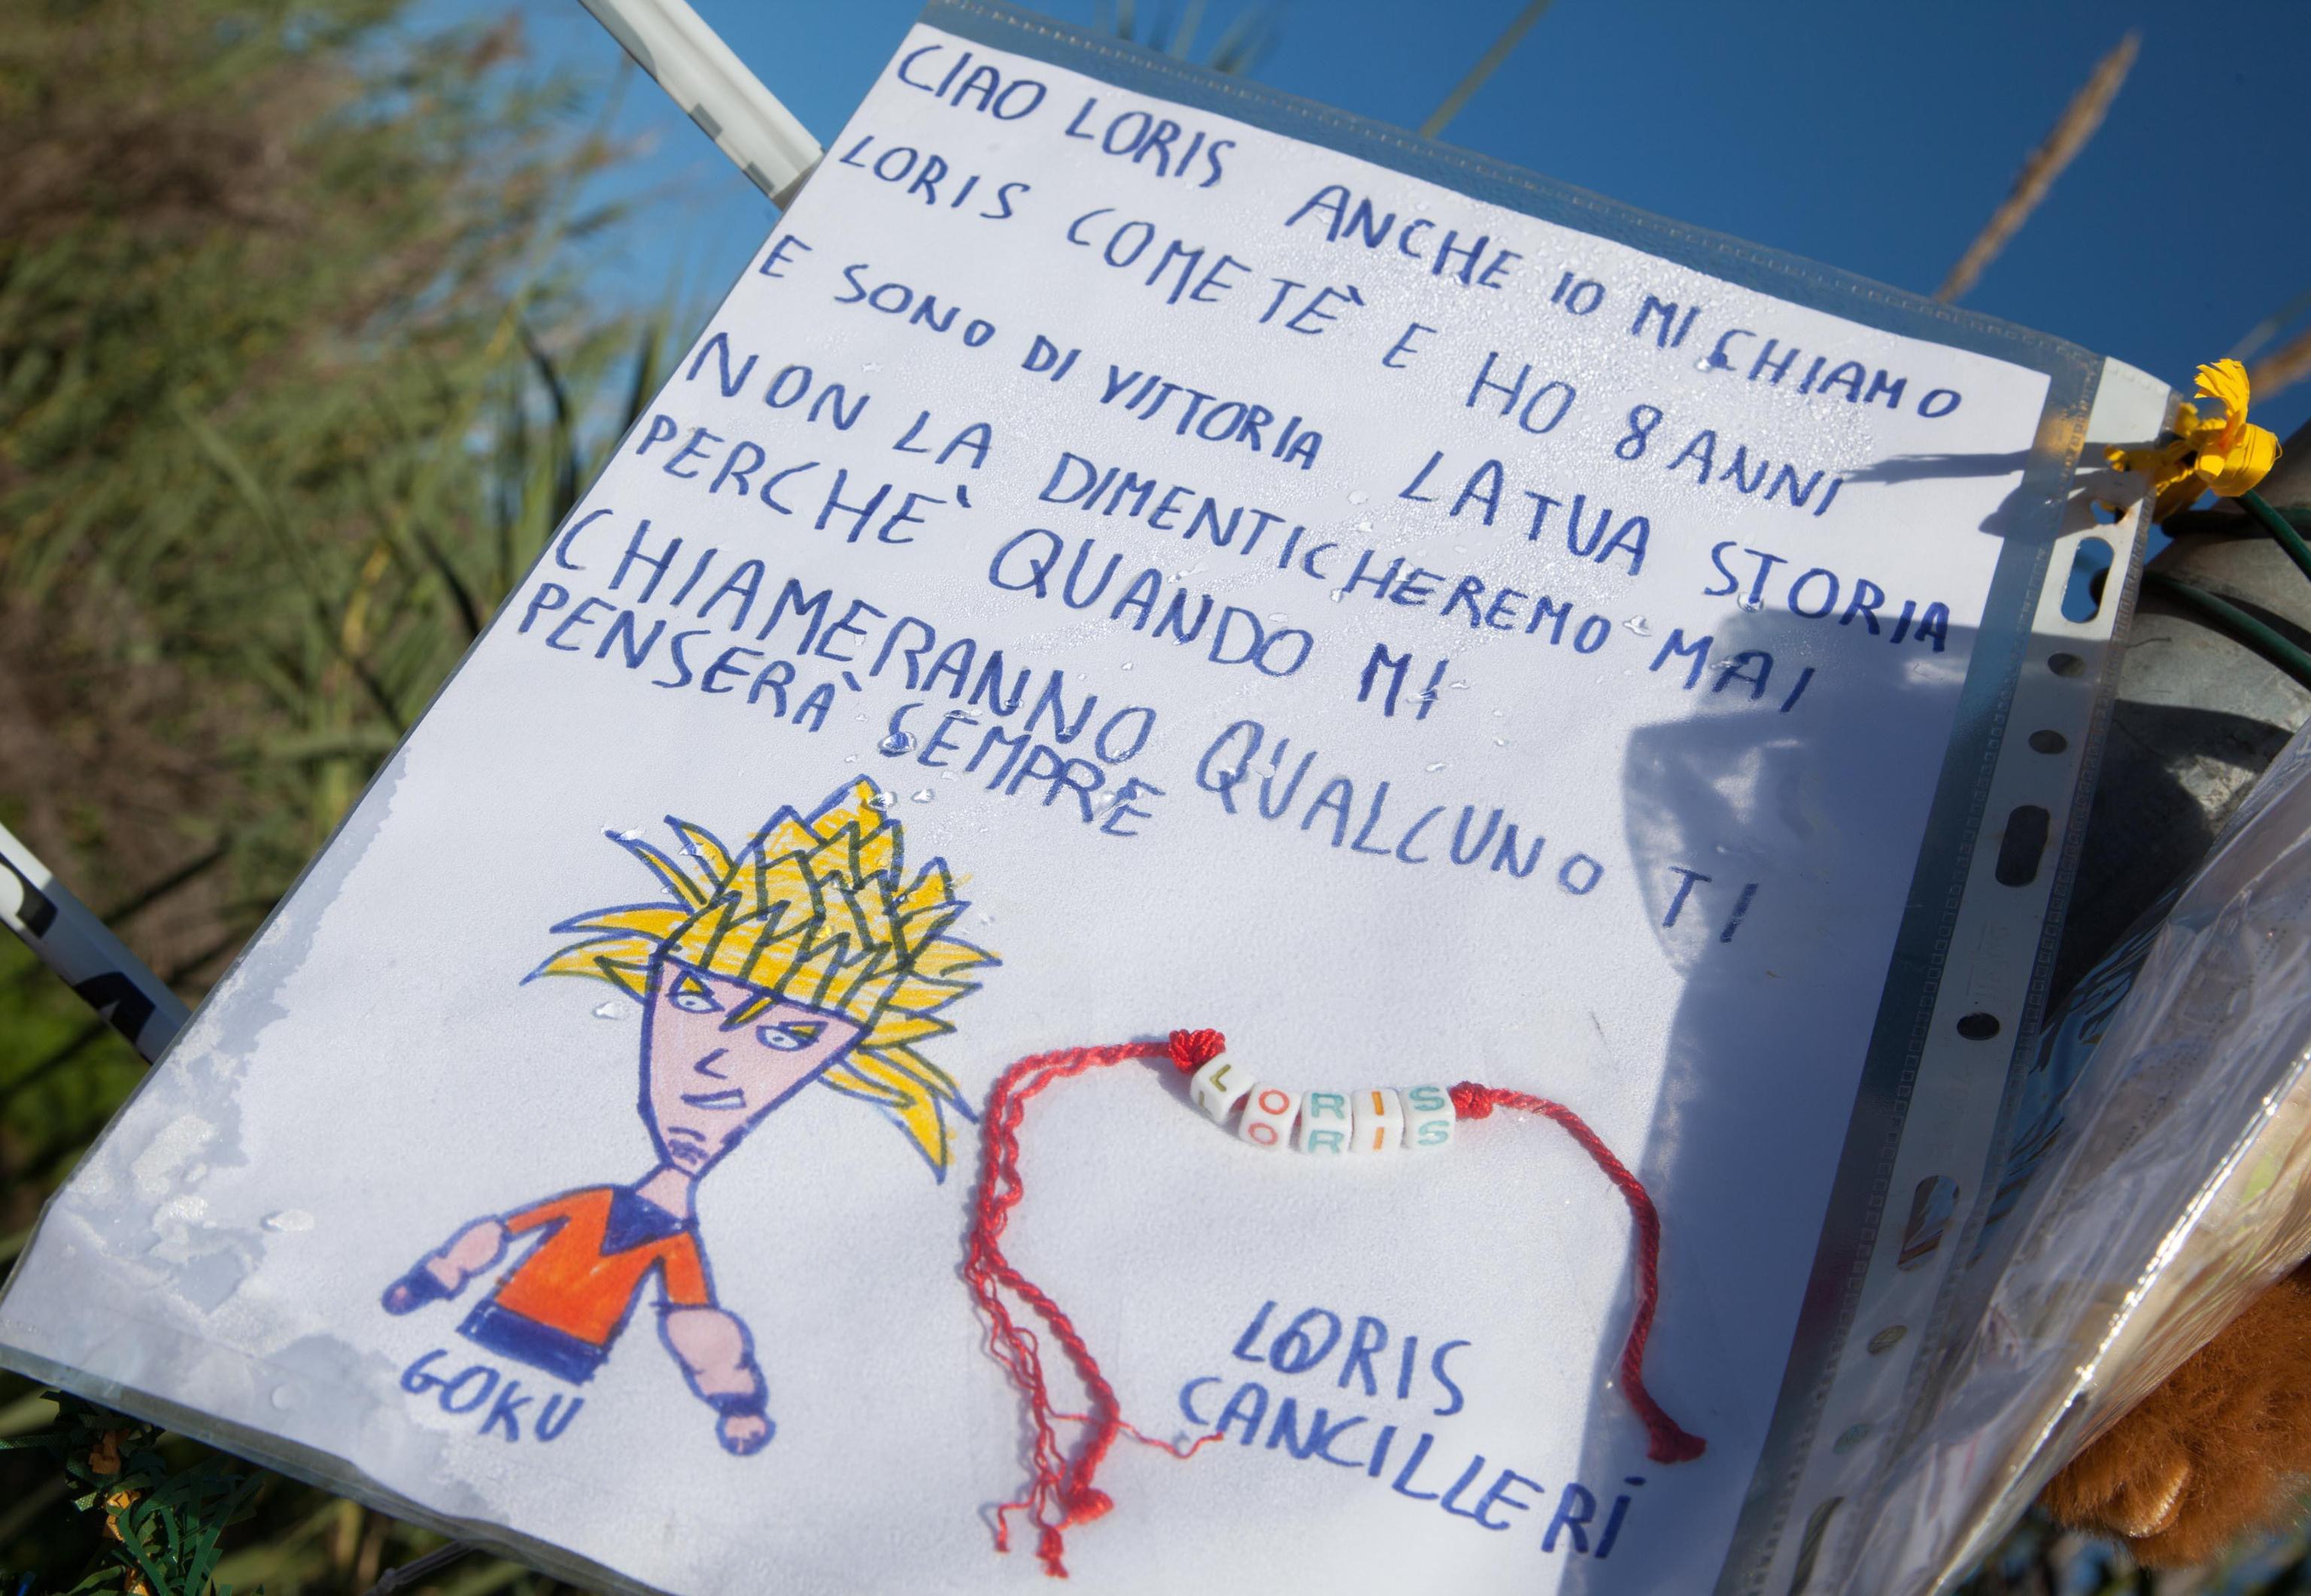 CIAO LORIS ANCHE IO MI CHIAMO
LORIS COME TÈ E HO 8 ANNI
E SONO DI VITTORIA LA TUA STORIA
NON LA DIMENTICHEREMO MAI
PERCHÈ QUANDO MI
CHIAMERANNO QUALCUNO TI
PENSERÀ SEMPRE
LORIS
LORIS
GOKU
LORIS
CANCILLERI